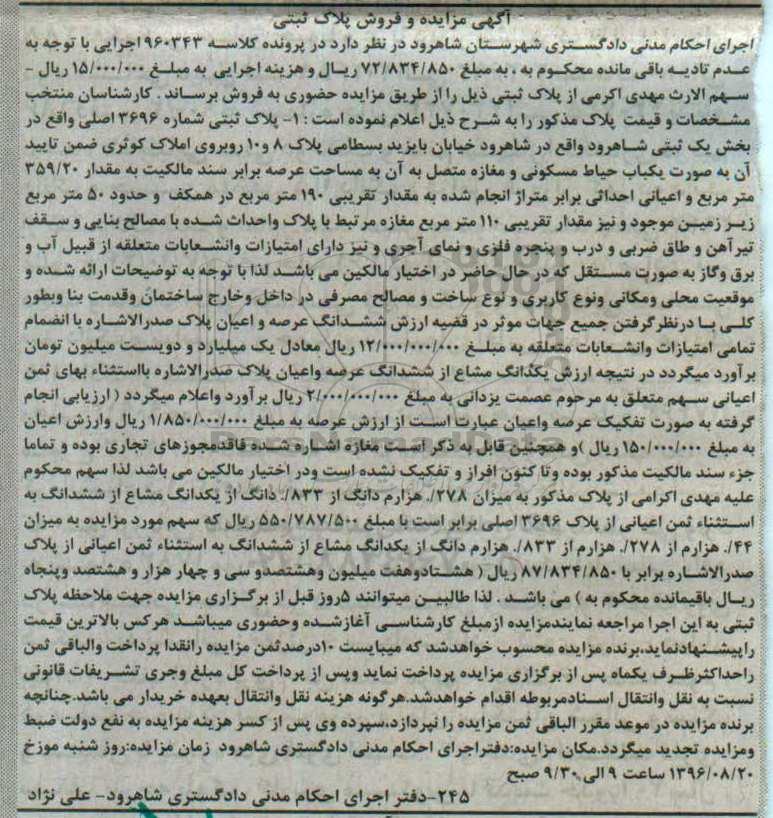 آگهی مزایده و فروش پلاک ثبتی
اجرای احکام مدنی دادگستری شهرستان شاهرود در نظر دارد در پرونده کلاسه ۹۶۰۳۴۳ اجرایی با توجه به
عدم تادیه باقی مانده محکوم به ، به مبلغ ۷۲/۸۳۴/۸۵۰ ریال و هزینه اجرایی به مبلغ ۱۵/۰۰۰/۰۰۰ ریال -
سهم الارث مهدی اکرمی از پلاک ثبتی ذیل را از طریق مزایده حضوری به فروش برساند . کارشناسان منتخب
مشخصات و قیمت پلاک مذکور را به شرح ذیل اعلام نموده است : ۱- پلاک ثبتی شماره ۳۶۹۶ اصلی واقع در
بخش یک ثبتی شاهرود واقع در شاهرود خیابان بایزید بسطامی پلاک ۸ و۱۰ روبروی املاک کوثری ضمن تایید
آن به صورت یکباب حیاط مسکونی و مغازه متصل به آن به مساحت عرصه برابر سند مالکیت به مقدار ۳۵۹/۲۰
متر مربع و اعیانی احداثی برابر متراژ انجام شده به مقدار تقریبی ۱۹۰ متر مربع در همکف و حدود ۵۰ متر مربع
زیر زمین موجود و نیز مقدار تقریبی ۱۱۰ متر مربع مغازه مرتبط با پلاک واحداث شده با مصالح بنایی و سقف
تیرآهن و طاق ضربی و درب و پنجره فلزی و نمای آجری و نیز دارای امتیازات وانشعابات متعلقه از قبیل آب و
برق وگاز به صورت مستقل که در حال حاضر در اختیار مالکین می باشد لذا با توجه به توضیحات ارائه شده و
موقعیت محلی ومکانی ونوع کاربری و نوع ساخت و مصالح مصرفی در داخل وخارج ساختمان وقدمت بنا وبطور
کلی با درنظرگرفتن جمیع جهات موثر در قضیه ارزش ششدانگ عرصه و اعیان پلاک صدرالاشاره با انضمام
تمامی امتیازات وانشعابات متعلقه به مبلغ ۱۲/۰۰۰/۰۰۰/۰۰۰ ریال معادل یک میلیارد و دویست میلیون تومان
برآورد میگردد در نتیجه ارزش یکدانگ مشاع از ششدانگ عرصه واعیان پلاک صدرالاشاره بااستثناء بهای ثمن
اعیانی سهم متعلق به مرحوم عصمت یزدانی به مبلغ ۲/۰۰۰/۰۰۰/۰۰۰ ریال برآورد واعلام میگردد ( ارزیابی انجام
گرفته به صورت تفکیک عرصه واعیان عبارت است از ارزش عرصه به مبلغ ۱/۸۵۰/۰۰۰/۰۰۰ ریال وارزش اعیان
به مبلغ ۱۵۰/۰۰۰/۰۰۰ ریال )و همچنین قابل به ذکر است مغازه اشاره شده فاقدمجوزهای تجاری بوده و تماما
جزء سند مالکیت مذکور بوده وتا کنون افراز و تفکیک نشده است ودر اختیار مالکین می باشد لذا سهم محکوم
علیه مهدی اکرامی از پلاک مذکور به میزان ۲۷۸/. هزارم دانگ از ۸۳۳/. دانگ از یکدانگ مشاع از ششدانگ به
استثناء ثمن اعیانی از پلاک ۳۶۹۶ اصلی برابر است با مبلغ ۵۵۰/۷۸۷/۵۰۰ ریال که سهم مورد مزایده به میزان
۴۴/. هزارم از ۲۷۸/. هزارم از ۸۳۳/. هزارم دانگ از یکدانگ مشاع از ششدانگ به استثناء ثمن اعیانی از پلاک
صدرالاشاره برابر با ۸۷/۸۳۴/۸۵۰ ریال ( هشتادوهفت میلیون وهشتصدو سی و چهار هزار و هشتصد وپنجاه
ریال باقیمانده محکوم به ) می باشد . لذا طالبین میتوانند ۵روز قبل از برگزاری مزایده جهت ملاحظه پلاک
ثبتی به این اجرا مراجعه نمایندمزایده ازمبلغ کارشناسی آغازشده وحضوری میباشد هرکس بالاترین قیمت
راپیشنهادنماید،برنده مزایده محسوب خواهدشد که میبایست ۱۰درصدثمن مزایده رانقدا پرداخت والباقی ثمن
راحداکثرظرف یکماه پس از برگزاری مزایده پرداخت نماید وپس از پرداخت کل مبلغ وجری تشریفات قانونی
نسبت به نقل وانتقال اسنادمربوطه اقدام خواهدشد.هرگونه هزینه نقل وانتقال بعهده خریدار می باشد.چنانچه
برنده مزایده در موعد مقرر الباقی ثمن مزایده را نپردازد،سپرده وی پس از کسر هزینه مزایده به نفع دولت ضبط
ومزایده تجدید میگردد.مکان مزایده:دفتراجرای احکام مدنی دادگستری شاهرود زمان مزایده:روز شنبه مورخ
۱۳۹۶/۰۸/۲۰ ساعت ۹ الی ۹/۳۰ صبح
۲۴۵-دفتر اجرای احکام مدنی دادگستری شاهرود- علی نژاد